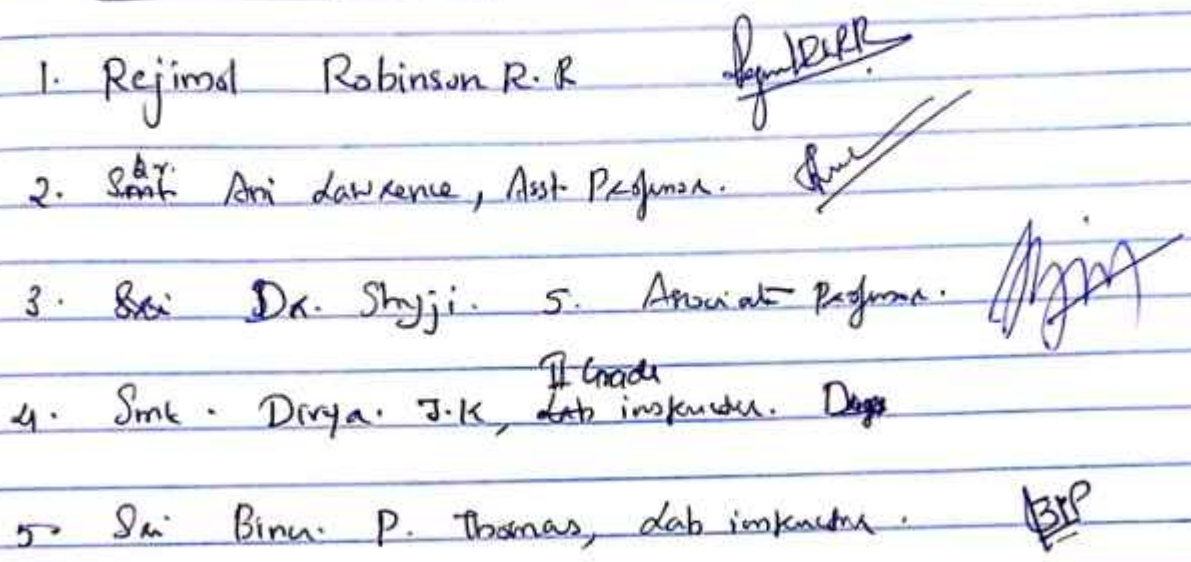 1. Rejimol Robinson R.R
2. Smt. Dr. Ani Lawrence, Asst. Professor.
3. Sri Dr. Shyji. S. Associate Professor.
4. Smt. Divya. J.K, II Grade Lab instructor. Divya
5. Sri Binu. P. Thomas, Lab instructor.